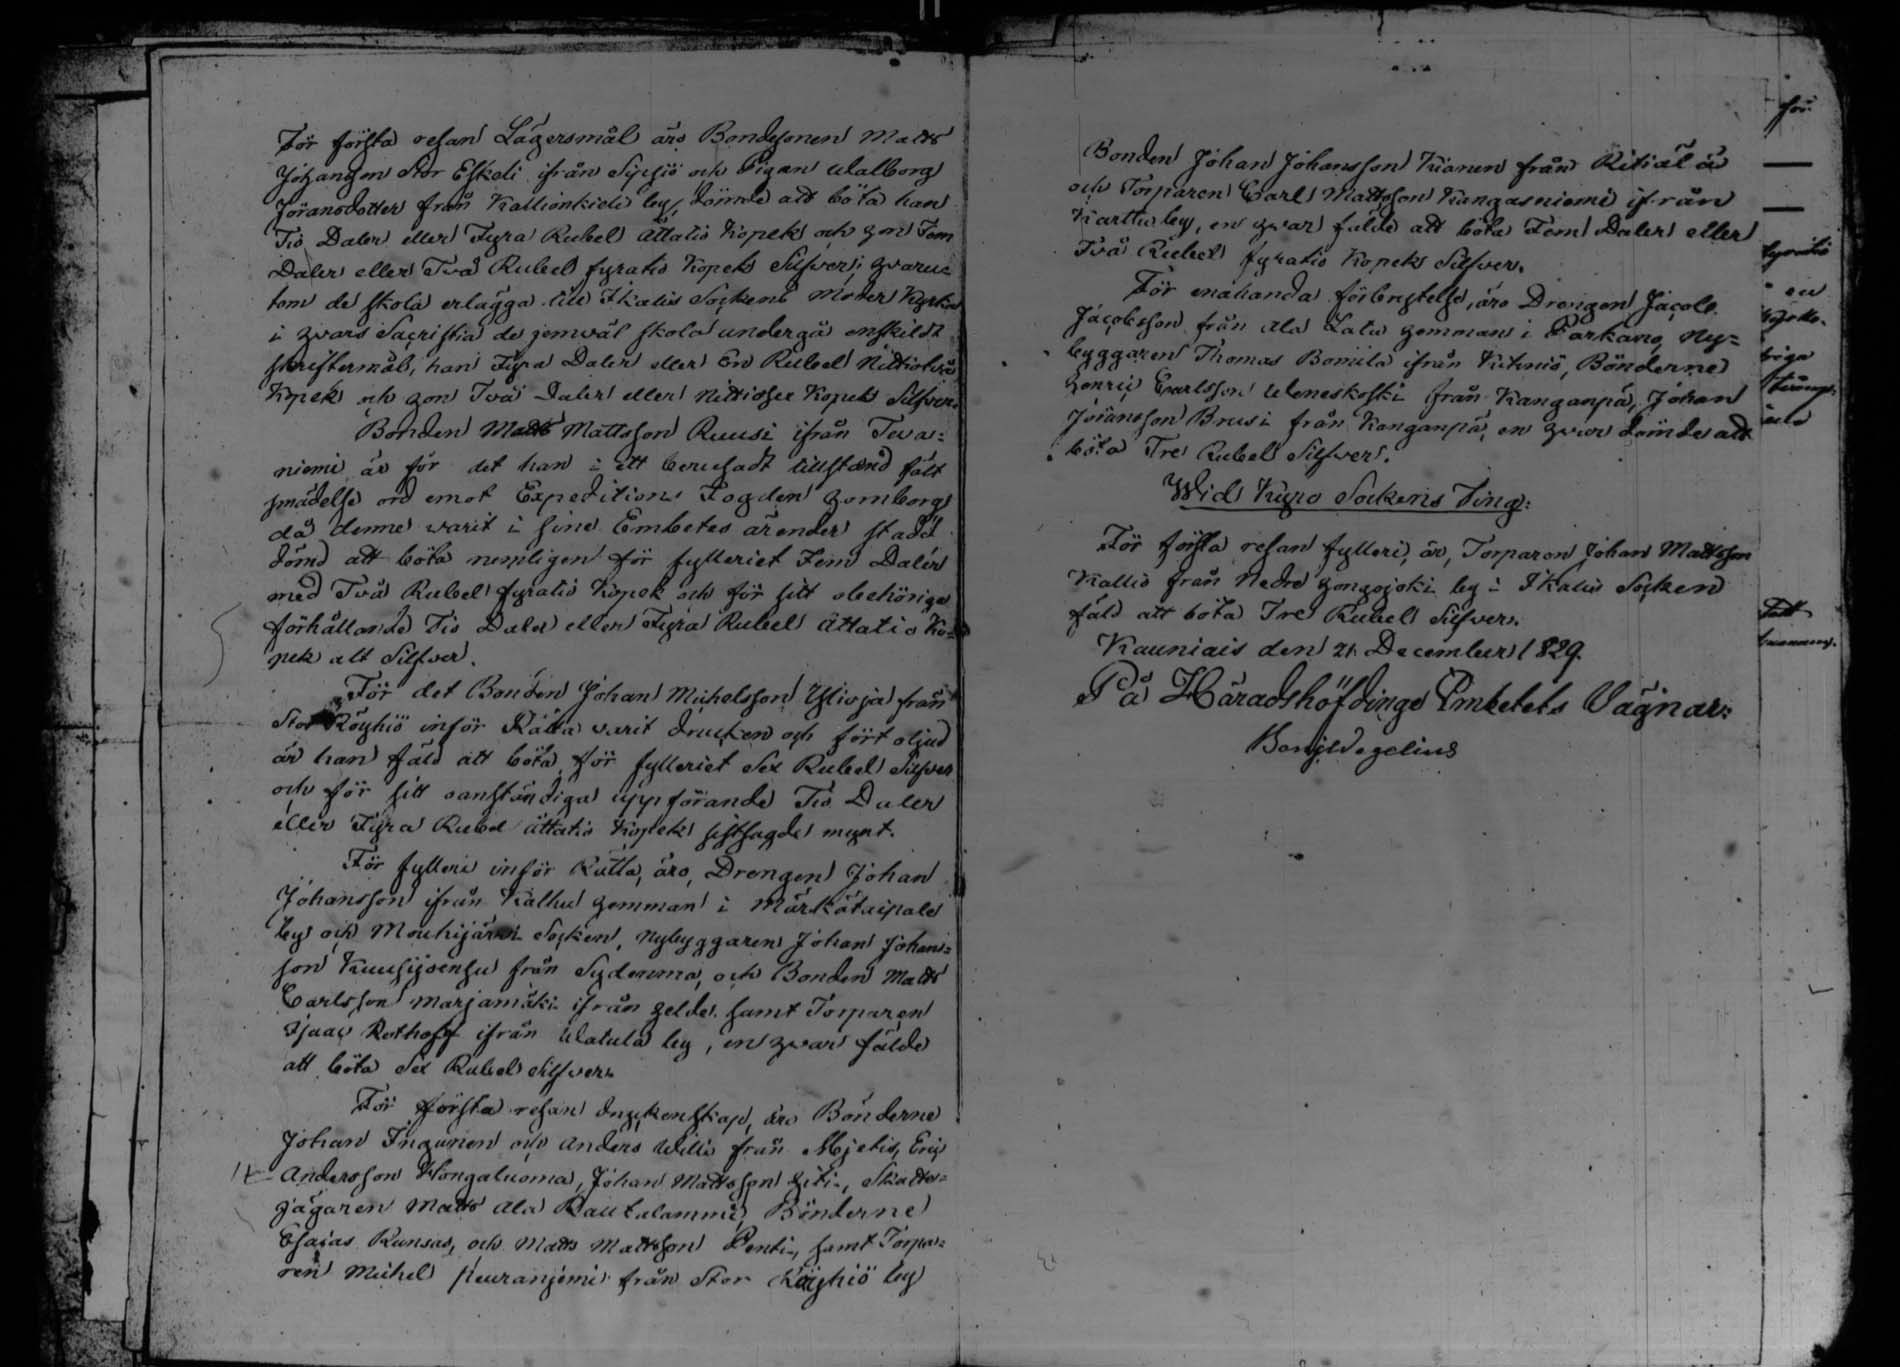 För första resan Lägersmål äro Bondesonen Matts
Johansson Stor Eskeli ifrån Sipsiö och Pigan Walborg
Jöransdotter från Kallionkieli by, dömde att böta han
Tio Daler eller Fyra Rubel Åttatio Kopek och hon Fem
Daler eller Två Rubel fyratio Kopek Silfver; hvaru-
tom de skola erlägga till Ikalis Sockens Moder Kyrka
i hvars Sacristia de jemväl skola undergå enskildt
skriftermål, han Fyra Daler eller En Rubel Nittiotvå
Kopek och hon Två Daler eller Nittiosex Kopek Silfver.
Bonden Matts Mattsson Ruusi ifrån Teva-
niemi är för det han i ett berusadt tillstånd fält
smädelse ord emot Expeditions Fogden Homborg
då denne varit i sine Embetes ärender stadd
dömd att böta nemligen för fylleriet Fem Daler
med Två Rubel fyratio Kopek och för sitt obehöriga
förhållande Tio Daler eller Fyra Rubel Åttatio Ko-
pek alt Silfver.
För det Bonden Johan Michelsson Ylioja från
Stor Röyhiö inför Rätta varit drucken och fört oljud
är han fäld att böta för fylleriet Sex Rubel Silfver
och för sitt oanständiga uppförande Tio Daler
eller Fyra Rubel Åttatio Kopek sistsagde mynt.
För fylleri inför Rätta, äro, Drengen Johan
Johansson ifrån Kalhu hemman i Märkätaipale
by och Mouhijärvi Socken, Nybyggaren Johan Johans-
son Kuusijoensu från Sydenmaa, och Bonden Matts
Carlsson Marjamäki ifrån Heldes samt Torparen
Isaac Rothoff ifrån Watula by, en hvar fälde
att böta Sex Rubel Silfver.
För första resan dryckenskap, äro Bönderne
Johan Inqunen och Anders Willi från Mjetis, Eric
Andersson Hongaluoma, Johan Mattsson Hiti, Skatte-
jägaren Matts Ala Rautalammi, Bönderne
Esaias Kunsas, och Matts Mattsson Penti, samt Torpa-
ren Michel Peuraniemi från Stor Röyhiö by
Bonden Johan Johansson Kianen från Ritiälä
och Torparen Carl Mattsson Kangasniemi ifrån
Karttu by, en hvar fälde att böta Fem Daler eller
Två Rubel fyratio Kopek Silfver.
För enahanda förbrytelse, äro Drengen Jacob
Jacobsson från Ala Satu hemman i Parkano, Ny-
byggaren Thomas Bomila ifrån Kihniö, Bönderne
Henric Carlsson Weneskoski från Kanganpä, Johan
Jöransson Brusi från Kanganpä, en hvar dömde att
böta Tre Rubel Silfver.
Wid Kyro Sockens Ting:
För första resan fylleri, är, Torparen Johan Mattsson
Kallio från Nedre Hongojoki by i Ikalis Socken
fäld att böta Tre Rubel Silfver.
Kauniais den 21 December 1829.
På Häradshöfdinge Embetets Vägnar:
Benj. Wegelius
för
en